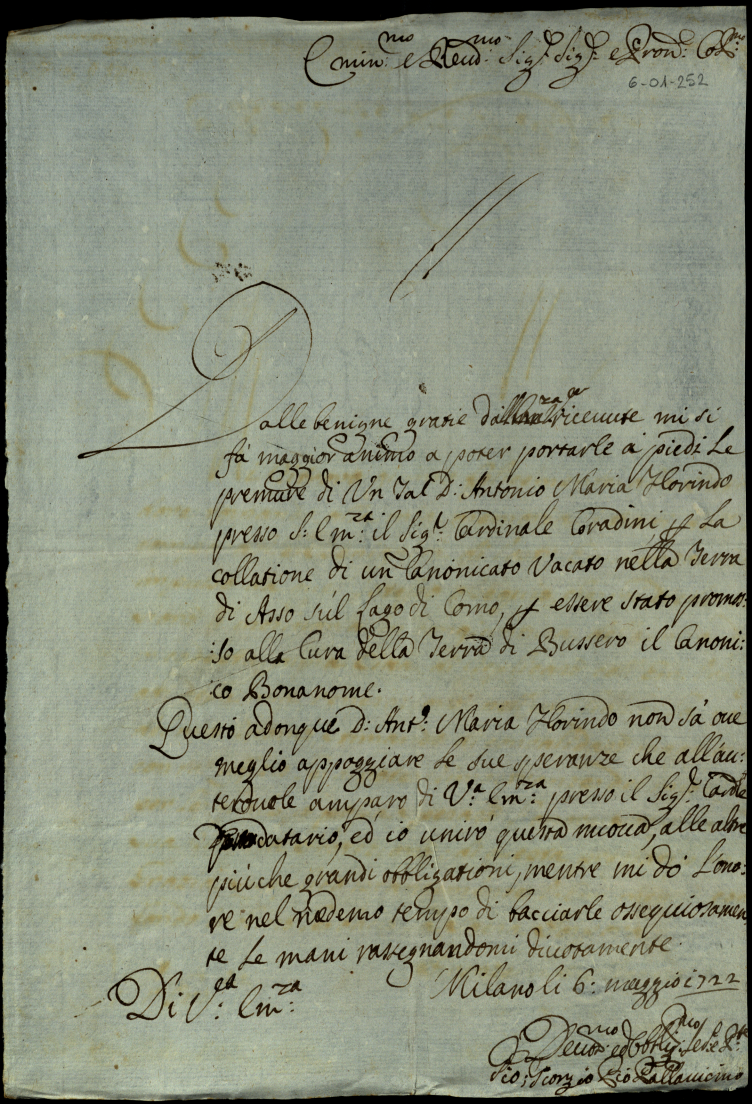 Emin:mo e Reud:mo Sig.r Sig.r e Pron: Col:mo
6-01-252
Dalle benigne gratie dall' riceuute mi si
fà maggior animo a poter portarle à piedi Le
premure di Vn Tal D: Antonio Maria Florindo
presso S: Em:za il Sig.r Cardinale Coradini, p La
collatione di un Canonicato Vacato nella Terra
di Asso sùl Lago di Como, p essere stato promos:
:so alla Cura della Terra di Bussero il Canoni:
co Bonanome.
Questo adonque D: Ant.o Maria Florindo non sà oue
meglio appoggiare le sue speranze che all'au:
teruole amparo di V:a Em:za presso il Sig.r Card.le
Prodatario, ed' io unirò questa nuoua, alle altre
più che grandi obbligationi, mentre mi dò L'ono:
re nel medemo tempo di bacciarle ossequiosamen:
te Le mani rassegnandomi diuotamente.
Di V:ra Em:za Milano li 6: maggio 1722
Deuot:mo ed Obblig:mo Ser.e
Gio: Giorgio Pio Pallauicino